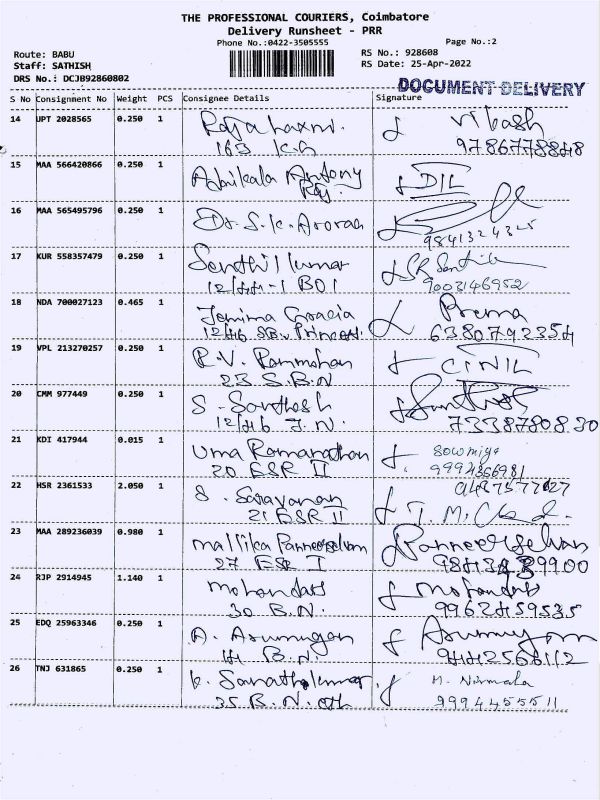 THE PROFESSIONAL COURIERS, Coimbatore
Delivery Runsheet - PRR
Phone No.:0422-3505555
Page No.:2
Route: BABU
RS No.: 928608
Staff: SATHISH
RS Date: 25-Apr-2022
DRS No.: DCJB92860802
DOCUMENT DELIVERY
S No Consignment No Weight PCS Consignee Details Signature
14 UPT 2028565 0.250 1 Rajalaxmi. Vikash
163
15 MAA 566420866 0.250 1 Antony DIL
Raj
16 MAA 565495796 0.250 1 Dr. S.K. Aroraa
9841324325
17 KUR 558357479 0.250 1 Senthil Kumar SR Senthil
12/44-1 BOI 9003146952
18 NDA 700027123 0.465 1 Jemima Gracia Prema
12/46 6380792354
19 VPL 213270257 0.250 1 R.V. Rammohan
23 S.B.N
20 CMM 977449 0.250 1 S. Santhosh Santhosh
12/46 J.N. 7338780830
21 KDI 417944 0.015 1 Uma Ramanathan Sowmiya
20 ESR II 9994366981
22 HSR 2361533 2.050 1 S. Saravanan
21 ESR II
23 MAA 289236039 0.980 1 Mallika Panneerselvam Panneerselvam
27 ESR I
24 RJP 2914945 1.140 1 Mohandas Mohandas
30 B.N. 9962459535
25 EDQ 25963346 0.250 1 A. Arumugam Arumugam
14 B.N. 9442568112
26 TNJ 631865 0.250 1 K. Sarathkumar M. Nirmala
35 B.N. 9994455511